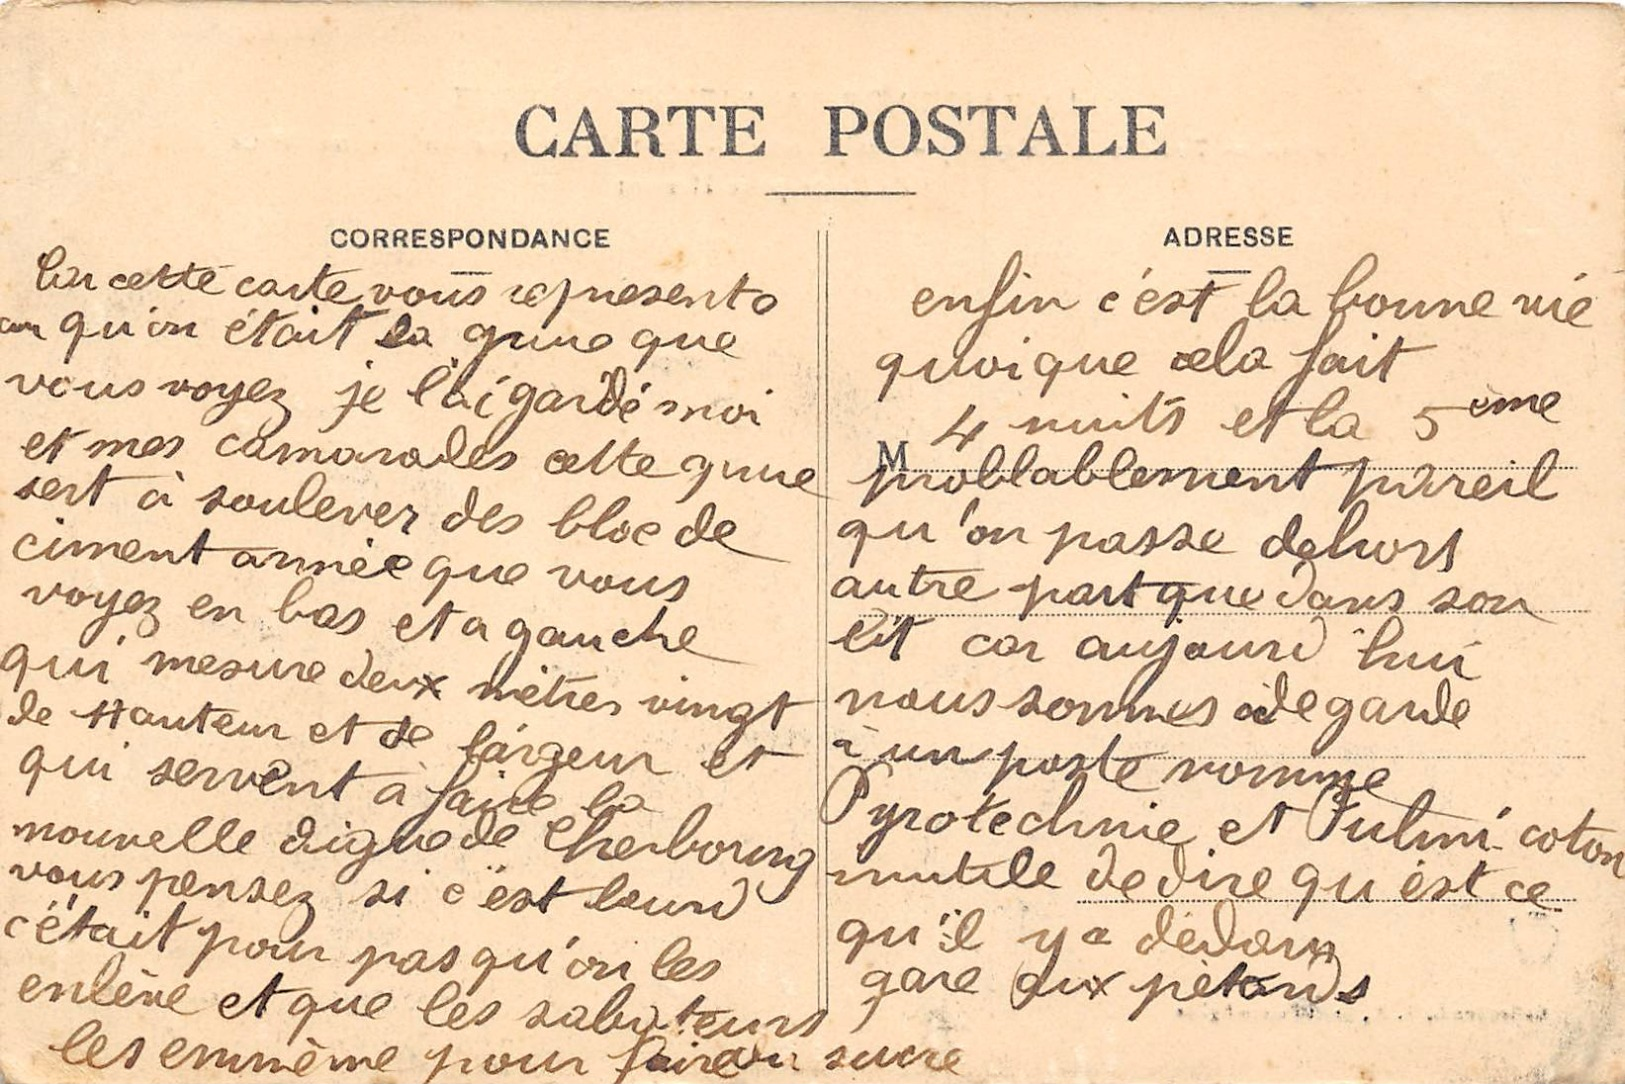 CARTE POSTALE
CORRESPONDANCE
cette carte vous represente
qu'on était la grue que
vous voyez je l'ai gardé moi
et mes camarades cette grue
sert à soulever des bloc de
ciment armée que vous
voyez en bas et a gauche
qui mesure deux mètres vingt
de Hauteur et de largeur et
qui servent à faire la
nouvelle digue de Cherbourg
vous pensez si c'est lourd
c'était pour pas qu'on les
enlève et que les saboteurs
les emmème pour faire du sucre
ADRESSE
enfin c'est la bonne vie
quoique cela fait
4 nuits et la 5ème
M
problablement pareil
qu'on passe dehors
autre part que dans son
lit car aujourd'hui
nous sommes de garde
à un poste nomme
Pyrotechnie et Fulmi-coton
inutile de dire qu'est ce
qu'il y a dedans
gare aux pétards